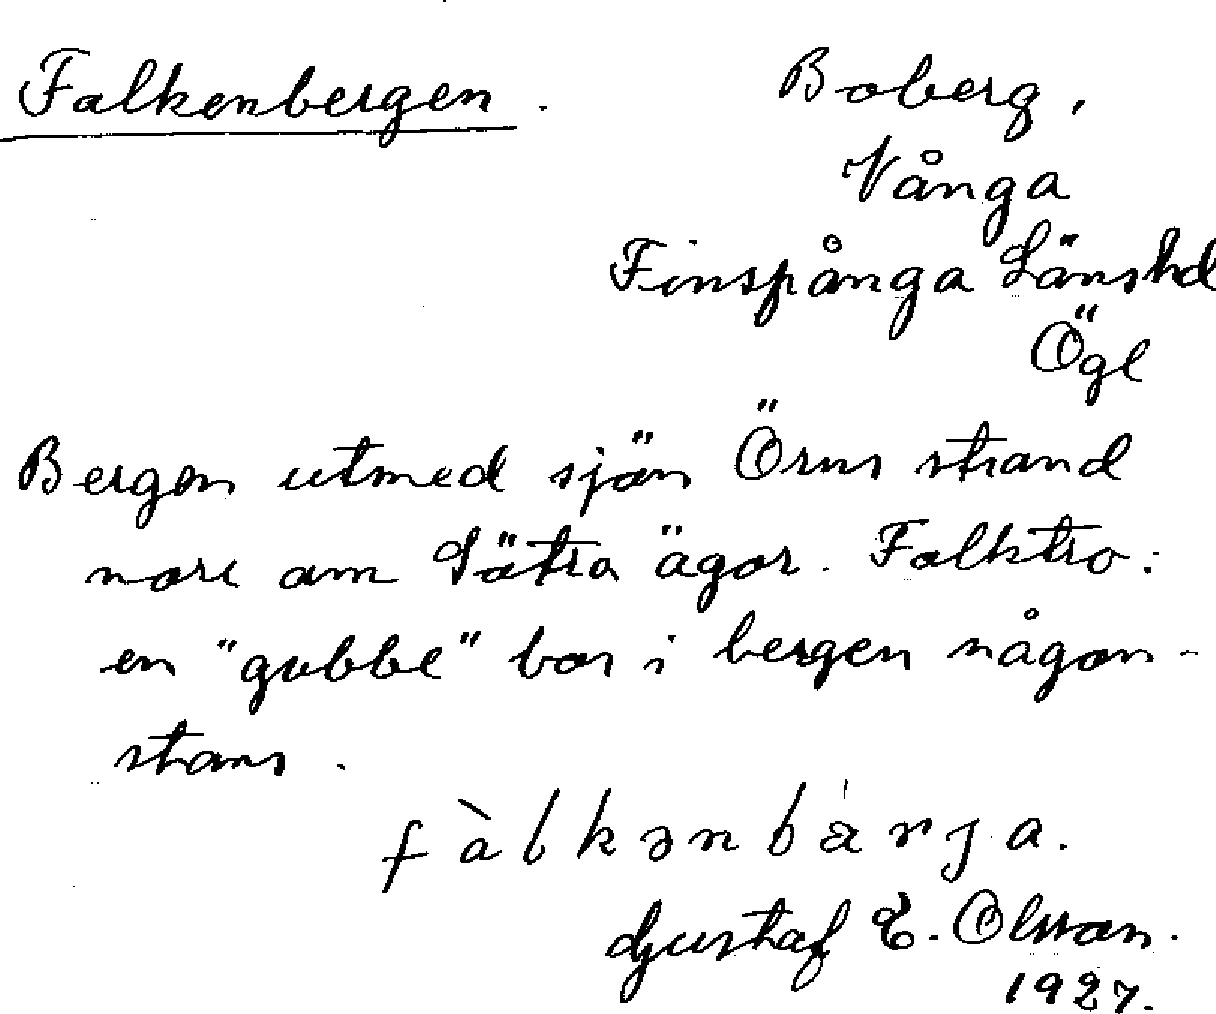 Falkenbergen.
Boberg,
Vånga
Finspånga Länshd
Ögl
Bergen utmed sjön Örns strand
norr om Sätra ägor. Folktro:
en "gubbe" bor i bergen någon-
stans.
fàlkənbárja.
Gustaf E. Olsson.
1927.